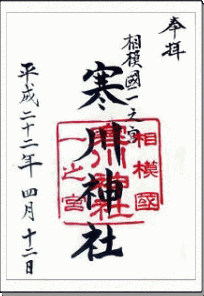 奉拝
相模國一之宮
寒川神社
相模國
寒川神社
一之宮
平成二十二年 四月 十二日